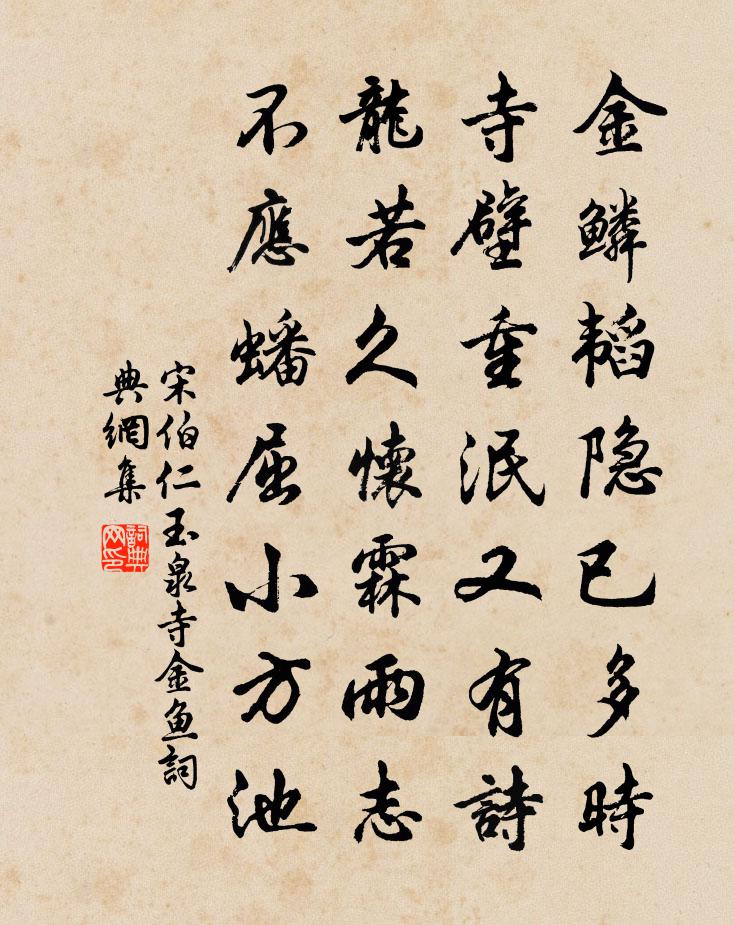 金鱗韜隐已多時
寺壁重泯又有詩
龍若久懷霖雨志
不應蟠屈小方池
宋伯仁玉泉寺金魚詞
典網集
詞典
网印